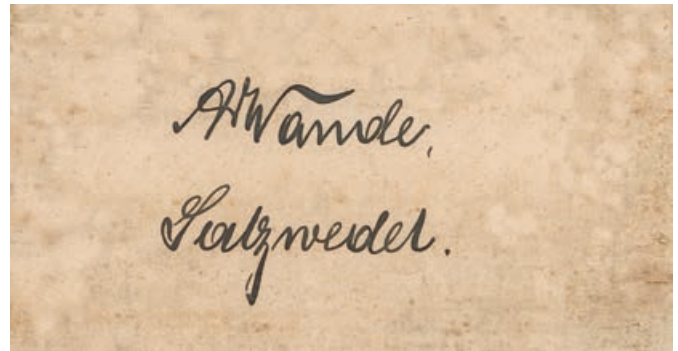 A Wande,
Salzwedel.